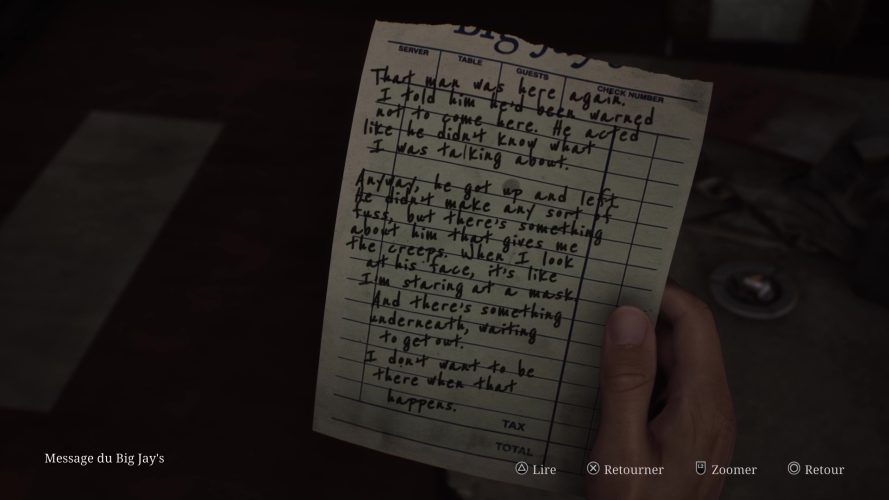 Big Jay's
SERVER TABLE GUESTS CHECK NUMBER
That man was here again.
I told him he'd been warned
not to come here. He acted
like he didn't know what
I was talking about.
Anyway, he got up and left
He didn't make any sort of
fuss, but there's something
about him that gives me
the creeps. When I look
at his face, it's like
I'm staring at a mask.
And there's something
underneath, waiting
to get out.
I don't want to be
there when that
happens.
TAX
TOTAL
Message du Big Jay's
Lire Retourner Zoomer Retour